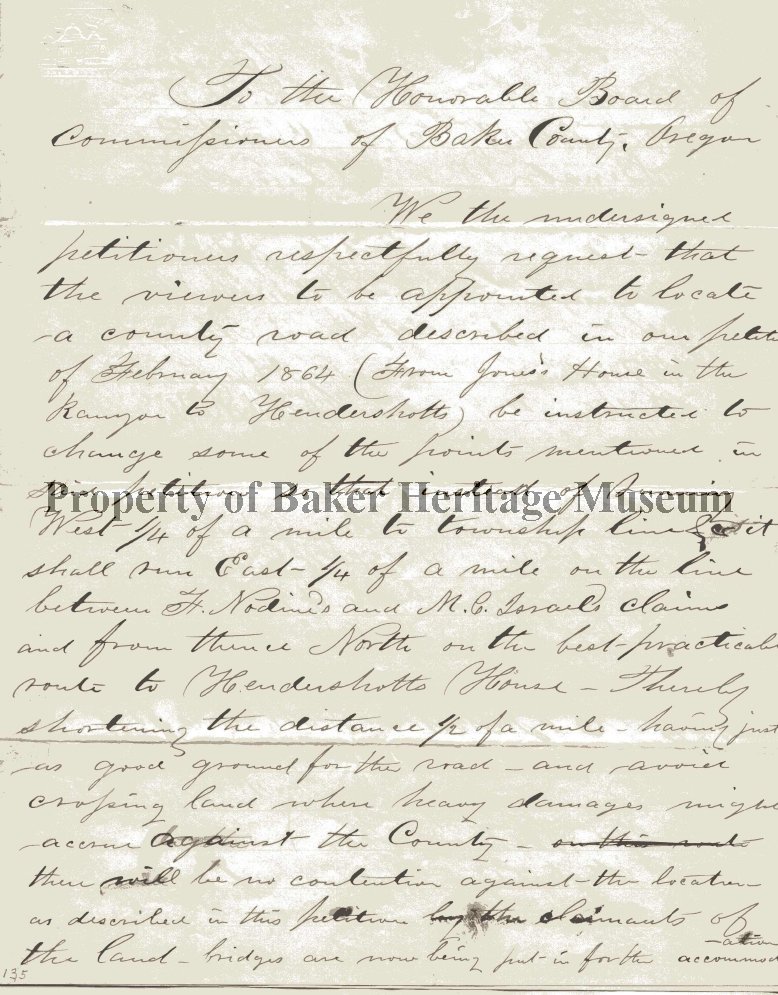 To the Honorable Board of
commissioners of Baker County, Oregon
We the undersigned
petitioners respectfully request that
the viewers to be appointed to locate
a county road described in our petiti
of February 1864 (From Jones's House in the
Kanyon to Hendershotts) be instructed to
change some of the points mentioned in
said petition so that instead of Running
Property of Baker Heritage Museum
West 1/4 of a mile to township line it
shall run East 1/4 of a mile on the line
between F. Nodine's and M.C. Israel's claims
and from thence North on the best practicabl
route to Hendershotts House - Thereby
shortening the distance 1/2 of a mile - having just
as good ground for the road - and avoid
crossing land where heavy damages might
accrue against the County - on this route
there will be no contention against the location
as described in this petition by the claimants of
the land - bridges are now being put in for the accommod
-ation
135